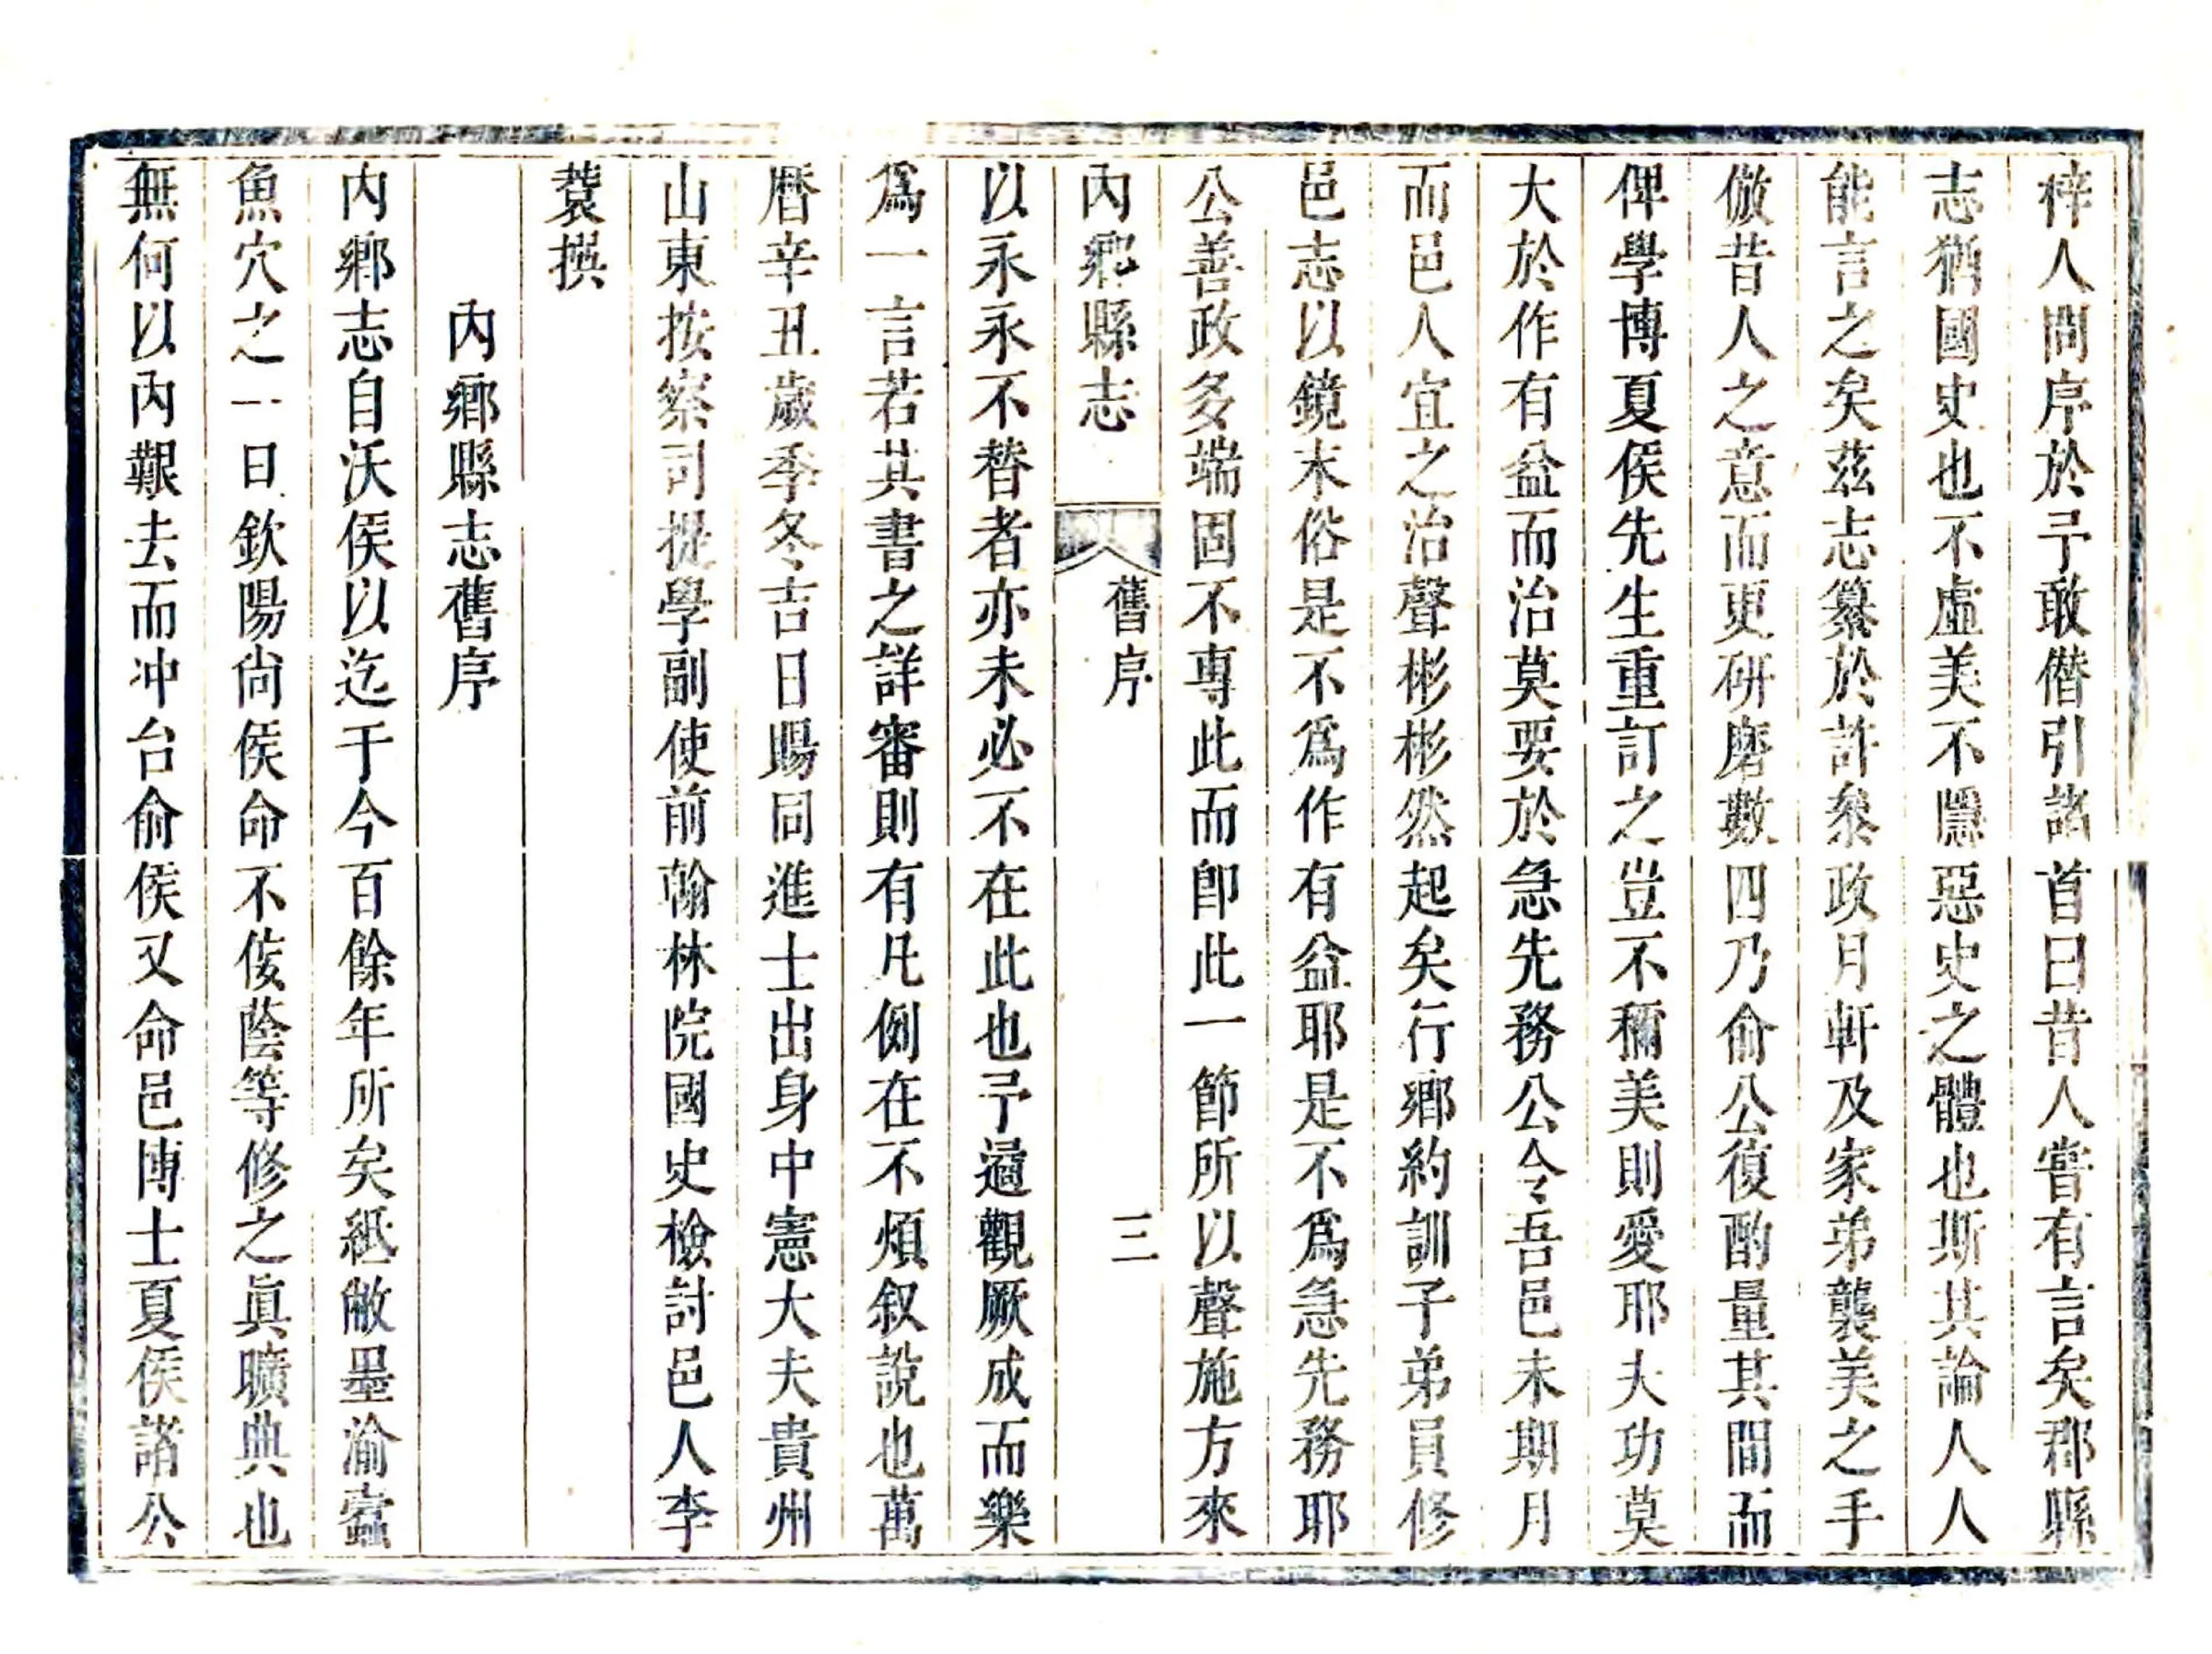 梓人問序於予敢僭引諸首曰昔人嘗有言矣郡縣
志猶國史也不虛美不隱惡史之體也斯其論人人
能言之矣茲志纂於許叅政月軒及家弟襲美之手
倣昔人之意而更研磨數四乃俞公復酌量其間而
俾學博夏侯先生重訂之豈不稱美則愛耶夫功莫
大於作有益而治莫要於急先務公令吾邑未期月
而邑人宜之治聲彬彬然起矣行鄉約訓子弟員修
邑志以鏡末俗是不爲作有益耶是不爲急先務耶
公善政多端固不專此而卽此一節所以聲施方來
內鄉縣志 舊序 三
以永永不替者亦未必不在此也予邇觀厥成而樂
爲一言若其書之詳審則有凡例在不煩叙說也萬
曆辛丑歲季冬吉日賜同進士出身中憲大夫貴州
山東按察司提學副使前翰林院國史檢討邑人李
蓘撰
內鄉縣志舊序
內鄉志自沃侯以迄于今百餘年所矣紙敝墨渝蠹
魚穴之一日欽陽尙侯命不佞蔭等修之眞曠典也
無何以內艱去而冲台俞侯又命邑博士夏侯諸公